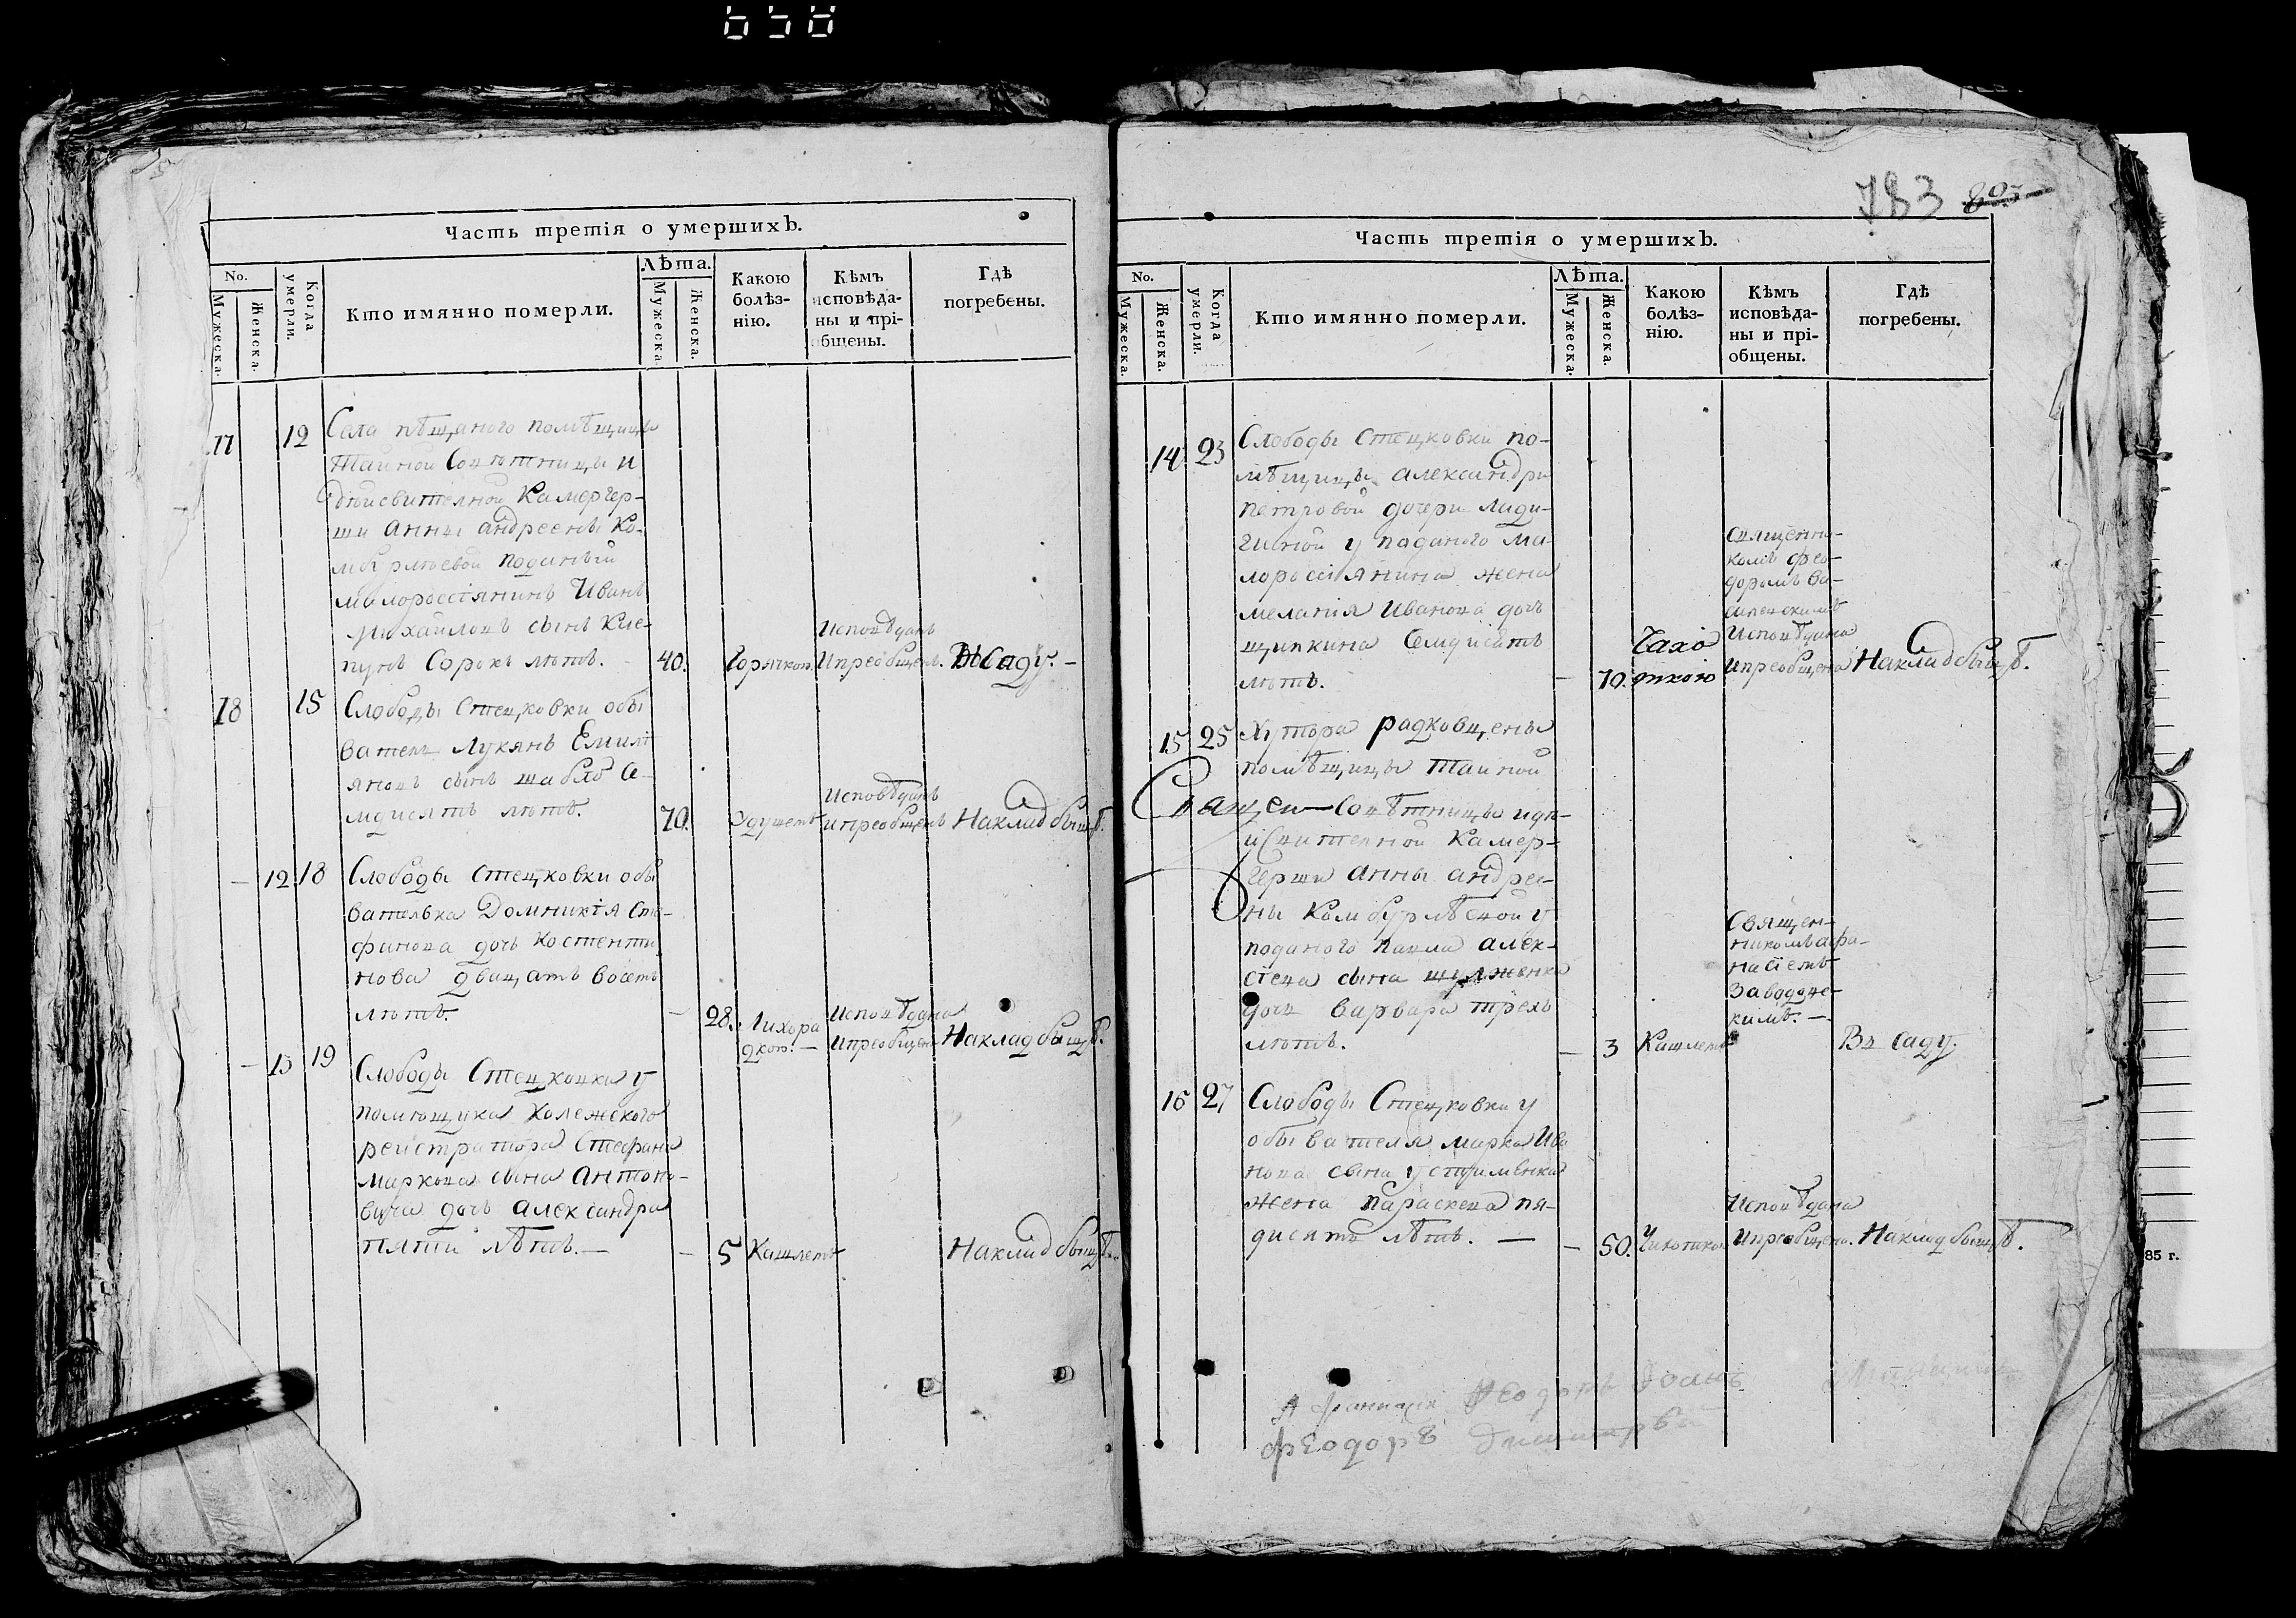 658
Часть третія о умершихъ.
No.
Мужеска.
Женска.
Когда умерли.
Кто имянно померли.
Лѣта.
Мужеска.
Женска.
Какою
болѣз-
нію.
Кѣмъ
исповѣда-
ны и прі-
общены.
Гдѣ
погребены.
12
Села пѣщаного помѣщицы
тайной совѣтницы и
дѣйсвителной камергер-
ши анны андреены ко-
поданый
малоросіянинъ Иванъ
михайловъ сынъ
сорокъ лѣтъ.
40.
Горячкою
Исповѣданъ
Ипреобщенъ.
Всаду.
18
15
Слободы Стецковки обы
ватель Лукянъ Емил
яновъ сынъ шабло се-
мдисятъ лѣтъ.
70.
Удушемъ
Исповѣданъ
ипреобщенъ
Накладбыщѣ.
12
18
Слободы Стецковки обы
вателька Домникія Сте-
финова дочь костенти
нова двацать восемь
лѣтъ.
28.
Лихора
дкою.
Исповѣдана
ипреобщена
Накладбыщѣ.
13
19
Слободы Стецковки у
помѣщика колежского
реистратора Стефана
маркова сына Антоно-
вича дочь александра
пяти лѣтъ.
5
Кашлемъ
Накладбыщѣ.
783
Часть третія о умершихъ.
No.
Мужеска.
Женска.
Когда умерли.
Кто имянно померли.
Лѣта.
Мужеска.
Женска.
Какою
болѣз-
нію.
Кѣмъ
исповѣда-
ны и прі-
общены.
Гдѣ
погребены.
14
23
Слободы Стецковки по-
мѣщицы александры
петровой дочери лади-
гиной у поданого ма-
лоросіянина жена
меланія Иванова дочь
щипкина семдисятъ
лѣтъ.
70.
Чахо
ткою
священни-
комъ фео-
доромъ
Исповѣдана
ипреобщена
Накладбыщѣ.
15
25
Хутора радковщены
помѣщицы тайной
совѣтницы идѣ-
исвителной камер-
герши анны андре-
ны комбурлѣевой у
поданого павла алек-
сіева сына шулженка
дочь варвара трехъ
лѣтъ.
3
Кашлемъ
Священ-
никомъ афа-
насіемъ
Заводов-
кимъ.
Въ саду.
16
27
Слободы Стецковки у
обывателя марка Ива
нова сына устименка
жена параскева пя-
дисятъ лѣтъ.
50.
Чахоткою
Исповѣдана
Ипреобщена.
Накладбыщѣ.
Феодоръ
85 г.